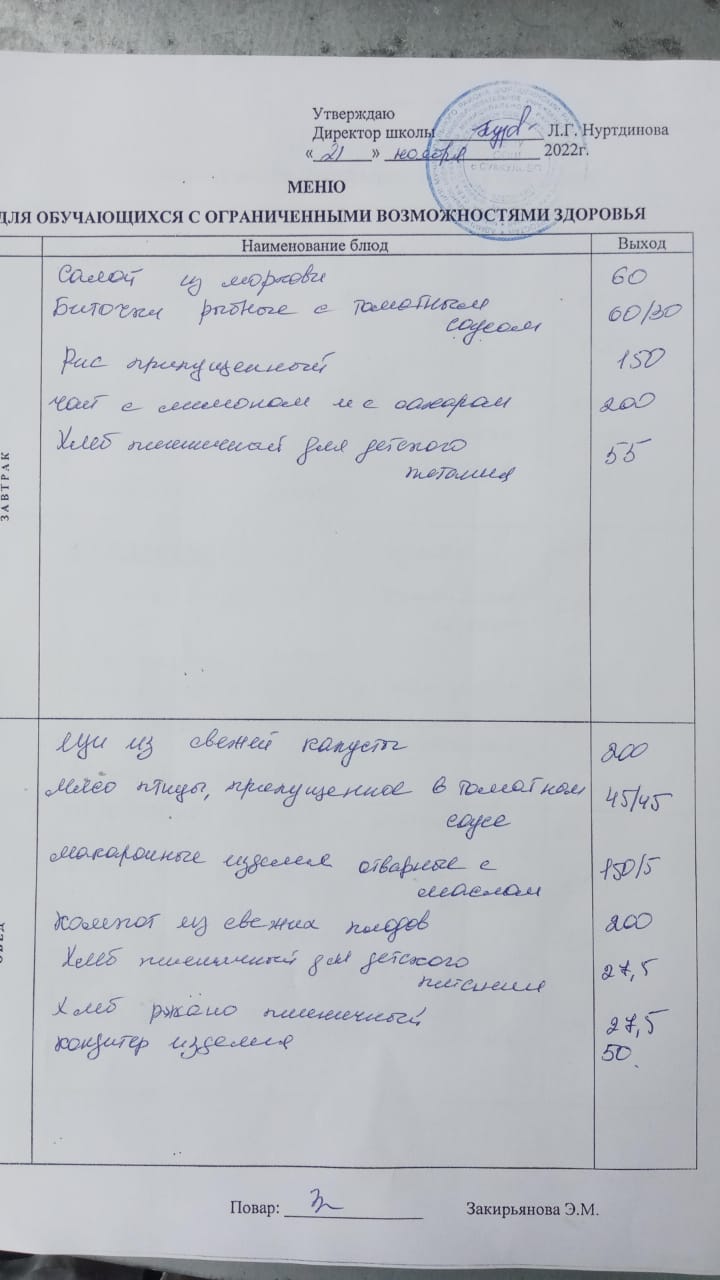 Утверждаю
Директор школы Л.Г. Нуртдинова
« 21 » ноября 2022г.
МЕНЮ
ДЛЯ ОБУЧАЮЩИХСЯ С ОГРАНИЧЕННЫМИ ВОЗМОЖНОСТЯМИ ЗДОРОВЬЯ
Наименование блюд Выход
ЗАВТРАК
Салат из моркови 60
Биточки рыбные с томатным
соусом 60/30
Рис припущенный 150
Чай с лимоном и с сахаром 200
Хлеб пшеничный для детского
питания 55
ОБЕД
Щи из свежей капусты 200
Мясо птицы, припущенное в томатном
соусе 45/45
Макаронные изделия отварные с
маслом 150/5
Компот из свежих плодов 200
Хлеб пшеничный для детского
питания 27,5
Хлеб ржано пшеничный 27,5
кондитер изделия 50
Повар: Закирьянова Э.М.